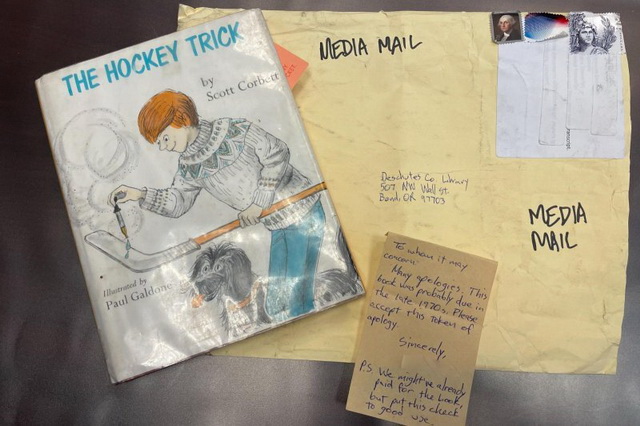 THE HOCKEY TRICK
by
Scott Corbett
Illustrated by
Paul Galdone
MEDIA MAIL
Deschutes Co. Library
507 NW Wall St.
Bend, OR 97703
MEDIA
MAIL
To whom it may
concern:
Many apologies. This
book was probably due in
the late 1970s. Please
accept this token of
apology.
Sincerely,
P.S. We might've already
paid for the book,
but put this check
to good use.